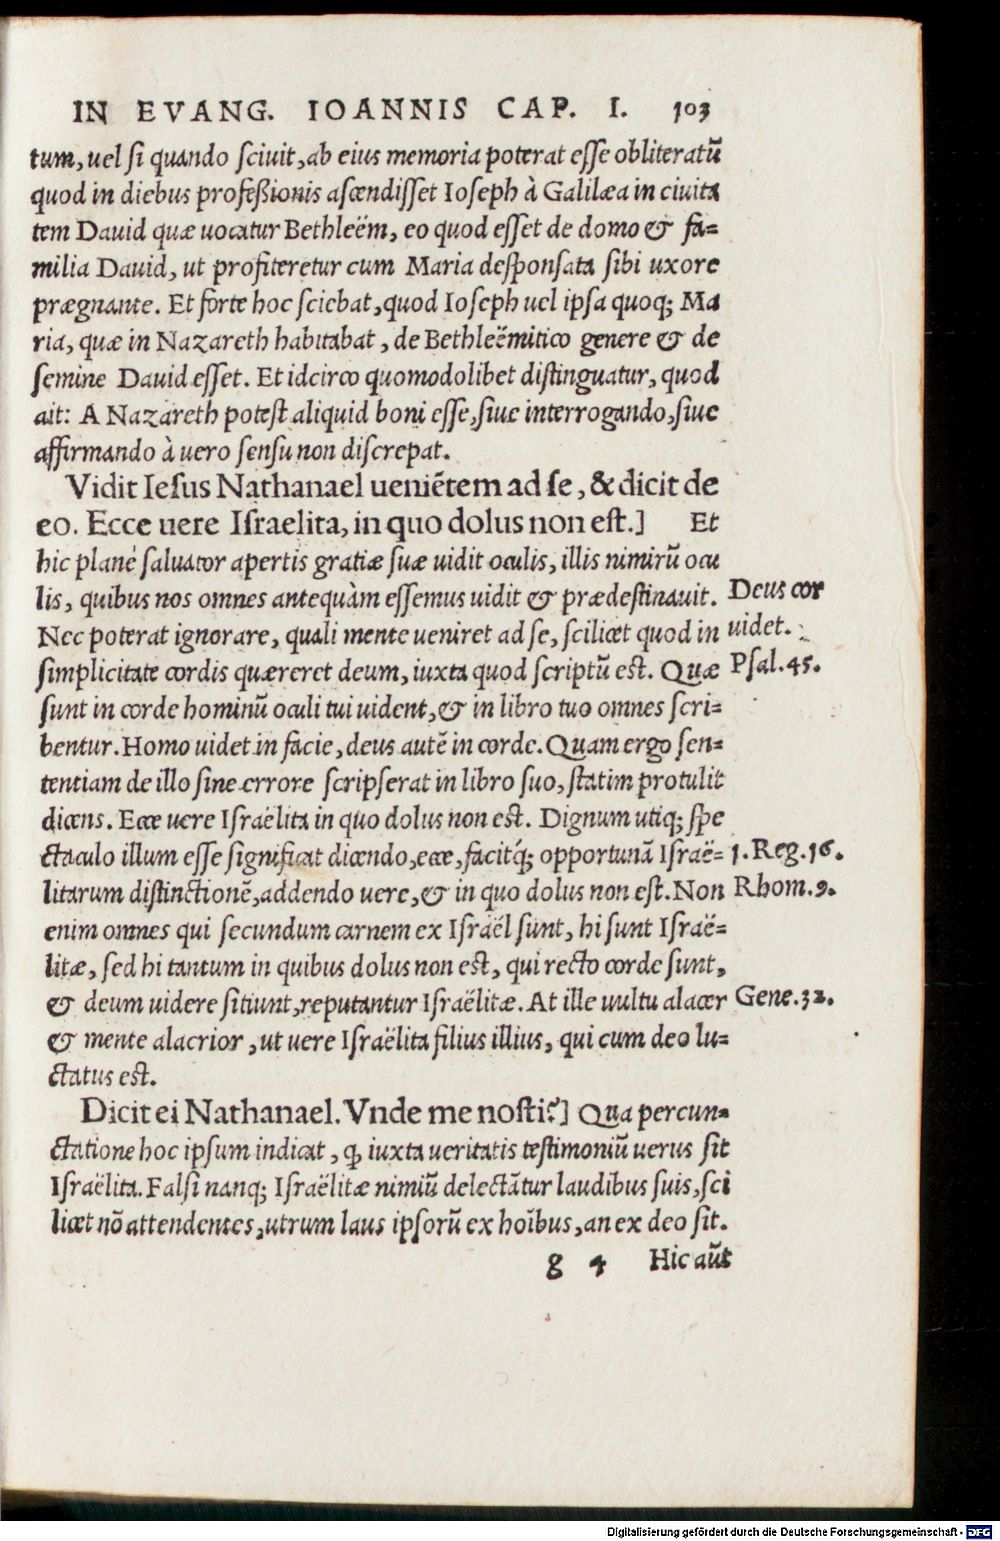 IN EVANG. IOANNIS CAP. I. 103
tum, uel si quando sciuit, ab eius memoria poterat esse obliteratũ
quod in diebus profeßionis ascendisset Ioseph à Galilæa in ciuita
tem Dauid quæ uocatur Bethleëm, eo quod esset de domo & fa=
milia Dauid, ut profiteretur cum Maria desponsata sibi uxore
prægnante. Et forte hoc sciebat, quod Ioseph uel ipsa quoq; Ma
ria, quæ in Nazareth habitabat, de Bethleëmitico genere & de
semine Dauid esset. Et idcirco quomodolibet distinguatur, quod
ait: A Nazareth potest aliquid boni esse, siue interrogando, siue
affirmando à uero sensu non discrepat.
Vidit Iesus Nathanael ueniẽtem ad se, & dicit de
eo. Ecce uere Israelita, in quo dolus non est.] Et
hic planè saluator apertis gratiæ suæ uidit oculis, illis nimirũ ocu
lis, quibus nos omnes antequàm essemus uidit & prædestinauit. Deus cor
Nec poterat ignorare, quali mente ueniret ad se, scilicet quod in uidet.
simplicitate cordis quæreret deum, iuxta quod scriptũ est. Quæ Psal.45.
sunt in corde hominũ oculi tui uident, & in libro tuo omnes scri=
bentur. Homo uidet in facie, deus autẽ in corde. Quam ergo sen=
tentiam de illo sine errore scripserat in libro suo, statim protulit
dicens. Ecce uere Israëlita in quo dolus non est. Dignum utiq; spe
ctaculo illum esse significat dicendo, ecce, facitq́; opportunã Israë= 1.Reg.16.
litarum distinctionẽ, addendo uere, & in quo dolus non est. Non Rhom.9.
enim omnes qui secundum carnem ex Israël sunt, hi sunt Israë=
litæ, sed hi tantum in quibus dolus non est, qui recto corde sunt,
& deum uidere sitiunt, reputantur Israëlitæ. At ille uultu alacer Gene.32.
& mente alacrior, ut uere Israëlita filius illius, qui cum deo lu=
ctatus est.
Dicit ei Nathanael. Vnde me nosti?] Qua percun=
ctatione hoc ipsum indicat, ꝙ iuxta ueritatis testimoniũ uerus sit
Israëlita. Falsi nanq; Israëlitæ nimiũ delectãtur laudibus suis, sci
licet nõ attendentes, utrum laus ipsorũ ex hoĩbus, an ex deo sit.
g 4 Hic aũt
Digitalisierung gefördert durch die Deutsche Forschungsgemeinschaft - DFG